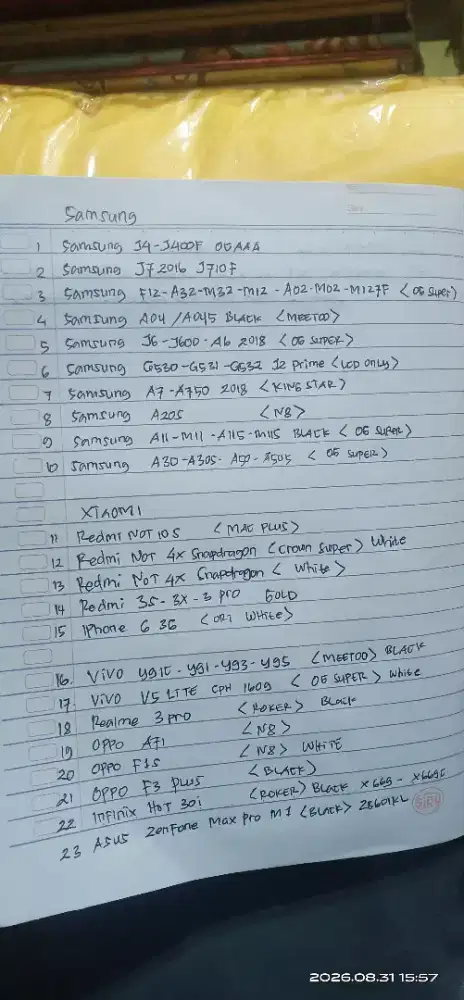 Samsung
1 Samsung J4-J400F OGAAA
2 Samsung J7 2016 J710F
3 Samsung F12-A32-M32-M12-A02-M02-M127F <OG Super>
4 Samsung A04/A045 BLACK <MEETOO>
5 Samsung J6-J600-A6 2018 <OG SUPER>
6 Samsung G530-G531-G532 J2 prime <LCD only>
7 Samsung A7-A750 2018 <KING STAR>
8 Samsung A20S <N8>
9 Samsung A11-M11-A115-M115 BLACK <OG SUPER>
10 Samsung A30-A305-A50-A505 <OG SUPER>
XIAOMI
11 Redmi NOT 10S <MAC PLUS>
12 Redmi NOT 4X Snapdragon (crown super) White
13 Redmi NOT 4X Snapdragon < White >
14 Redmi 3S-3X-3 pro GOLD
15 IPhone 6 3G <ORI WHITE>
16. VIVO Y91C-Y91-Y93-Y95 <MEETOO> BLACK
17. VIVO V5 LITE CPH 1609 < OG SUPER> White
18 Realme 3 pro <ROKER> BLACK
19 OPPO A71 <N8>
20 OPPO F1S <N8> WHITE
21 OPPO F3 PLUS <BLACK>
22 Infinix HOT 30i (ROKER) BLACK X669-X669C
23 ASUS Zenfone Max Pro M1 <BLACK> ZB601KL
SIDU
2026.08.31 15:57